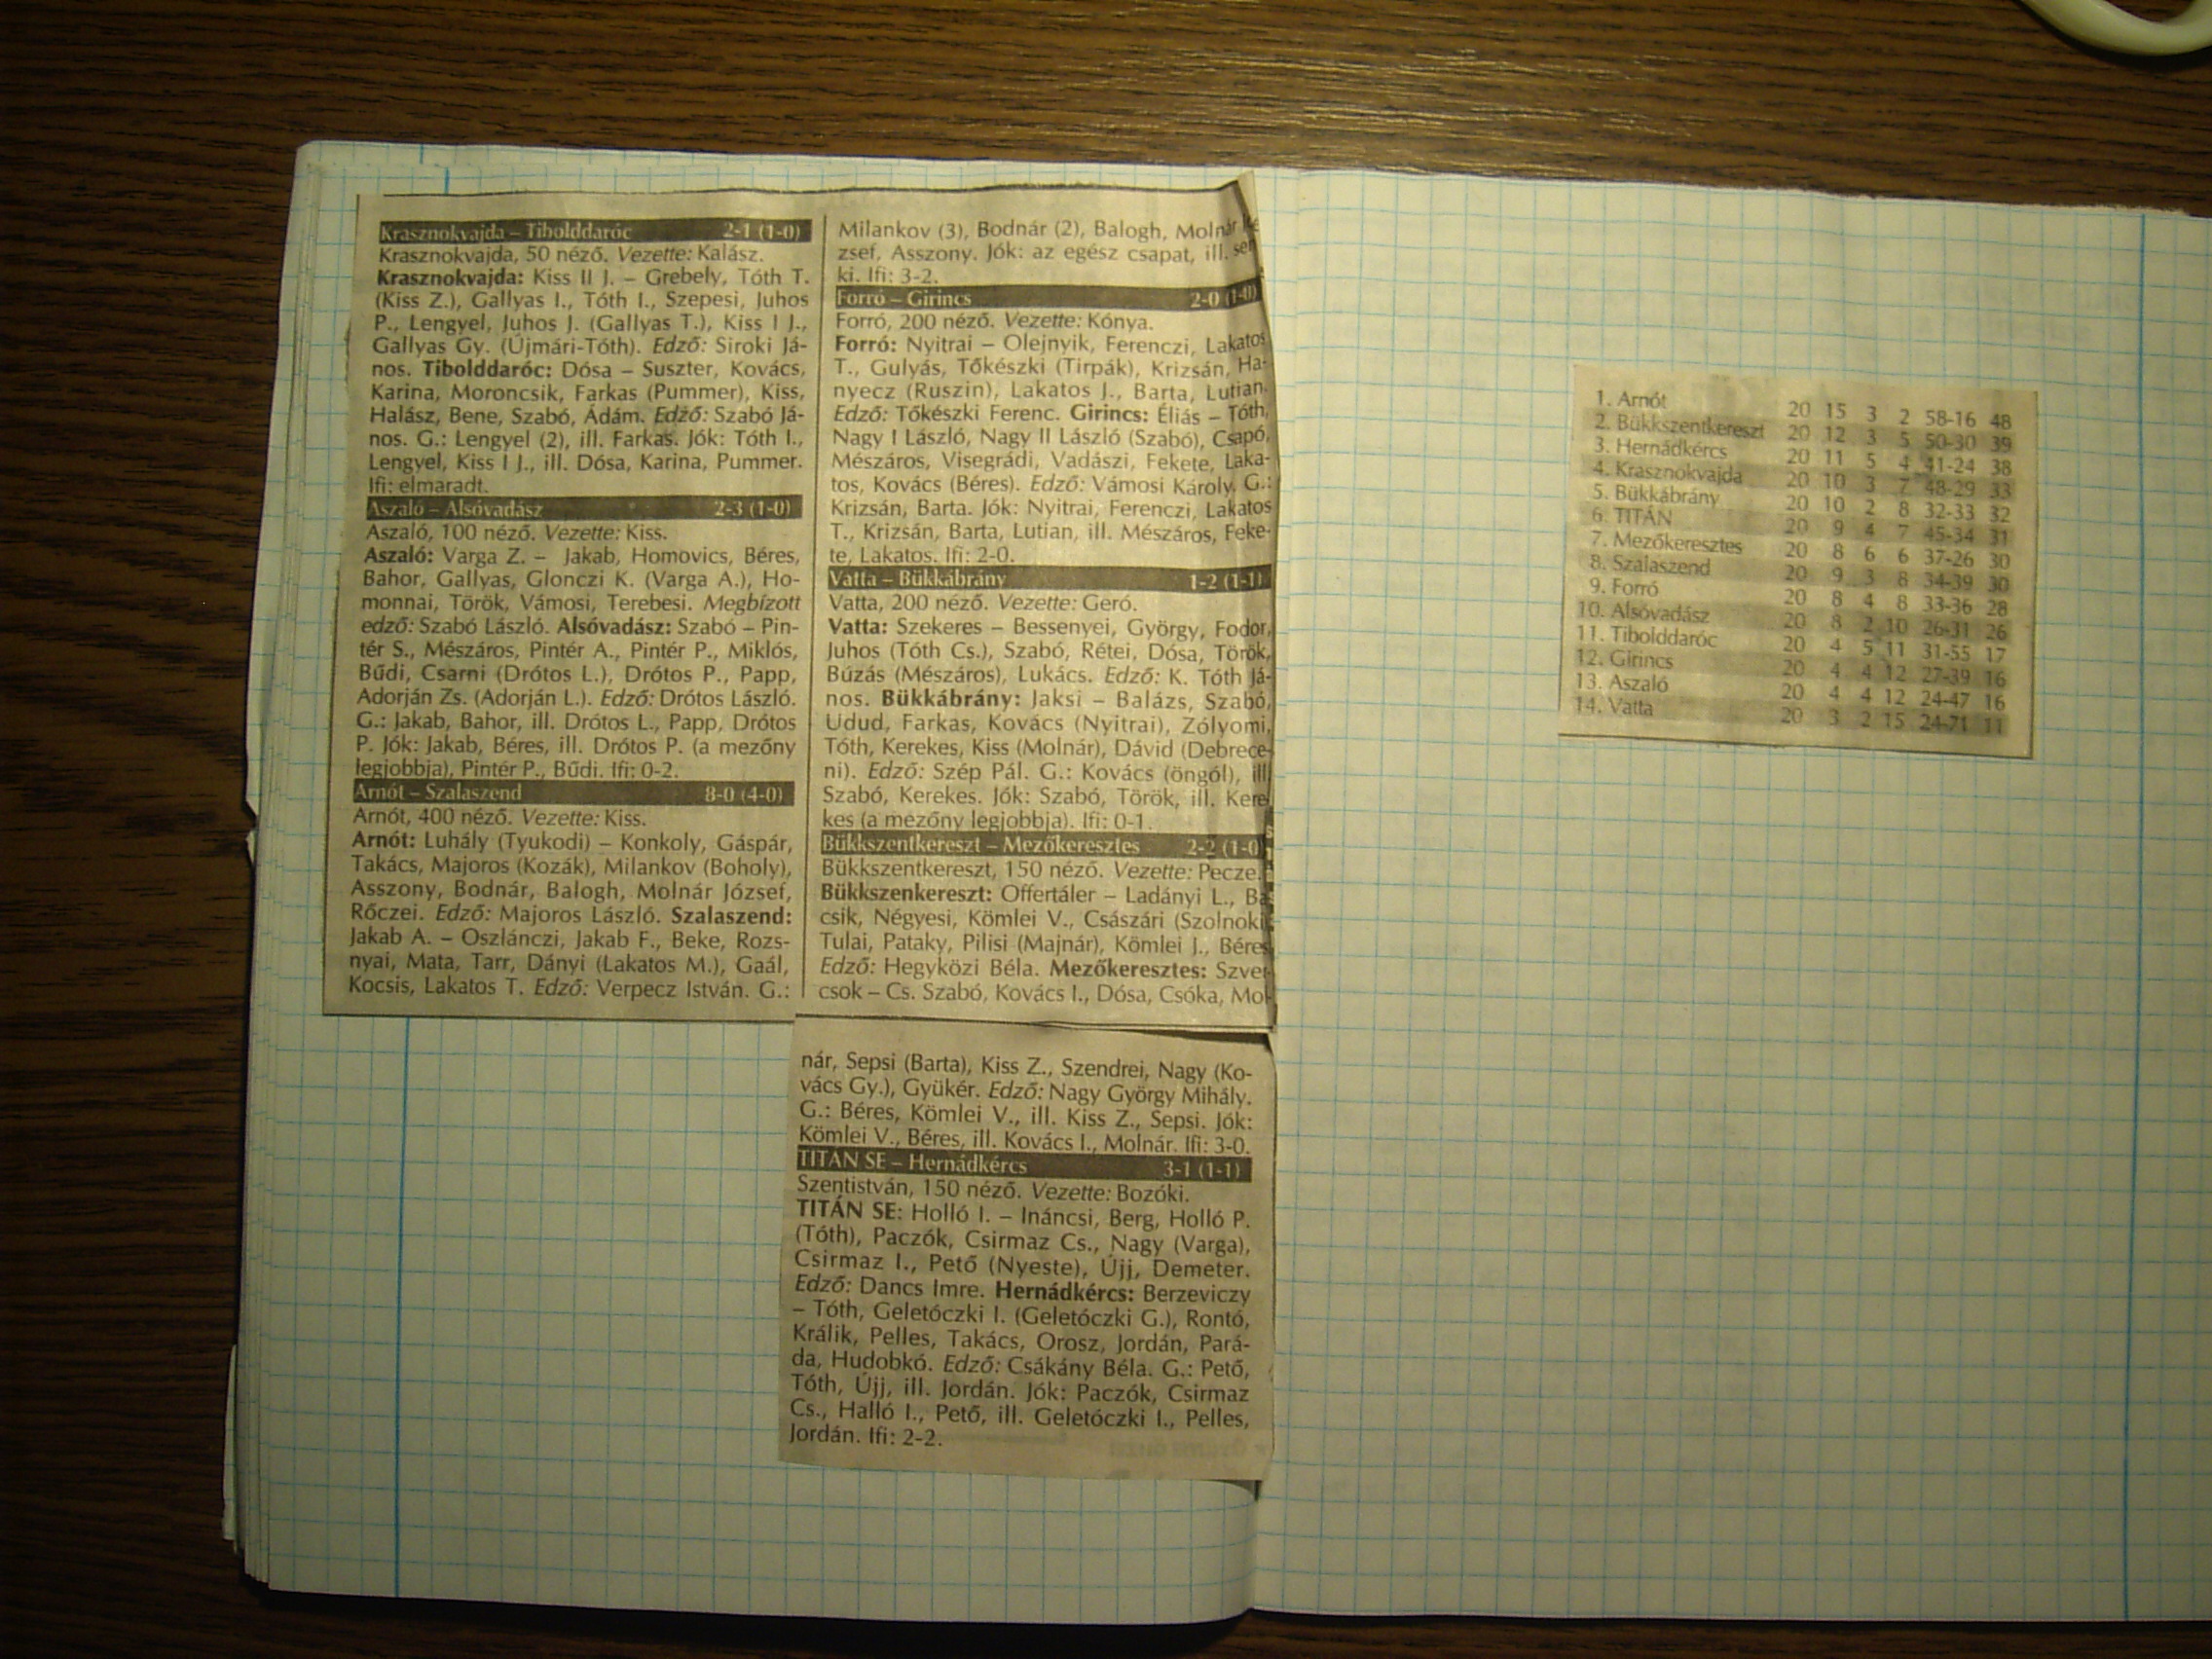 Krasznokvajda – Tibolddaróc 2-1 (1-0)
Krasznokvajda, 50 néző. Vezette: Kalász.
Krasznokvajda: Kiss II J. – Grebely, Tóth T.
(Kiss Z.), Gallyas I., Tóth I., Szepesi, Juhos
P., Lengyel, Juhos J. (Gallyas T.), Kiss I J.,
Gallyas Gy. (Újmári-Tóth). Edző: Siroki Já-
nos. Tibolddaróc: Dósa – Suszter, Kovács,
Karina, Moroncsik, Farkas (Pummer), Kiss,
Halász, Bene, Szabó, Ádám. Edző: Szabó Já-
nos. G.: Lengyel (2), ill. Farkas. Jók: Tóth I.,
Lengyel, Kiss I J., ill. Dósa, Karina, Pummer.
Ifi: elmaradt.
Aszaló – Alsóvadász 2-3 (1-0)
Aszaló, 100 néző. Vezette: Kiss.
Aszaló: Varga Z. – Jakab, Homovics, Béres,
Bahor, Gallyas, Glonczi K. (Varga A.), Ho-
monnai, Török, Vámosi, Terebesi. Megbízott
edző: Szabó László. Alsóvadász: Szabó – Pin-
tér S., Mészáros, Pintér A., Pintér P., Miklós,
Bűdi, Csarni (Drótos L.), Drótos P., Papp,
Adorján Zs. (Adorján L.). Edző: Drótos László.
G.: Jakab, Bahor, ill. Drótos L., Papp, Drótos
P. Jók: Jakab, Béres, ill. Drótos P. (a mezőny
legjobbja), Pintér P., Bűdi. Ifi: 0-2.
Arnót – Szalaszend 8-0 (4-0)
Arnót, 400 néző. Vezette: Kiss.
Arnót: Luhály (Tyukodi) – Konkoly, Gáspár,
Takács, Majoros (Kozák), Milankov (Boholy),
Asszony, Bodnár, Balogh, Molnár József,
Rőczei. Edző: Majoros László. Szalaszend:
Jakab A. – Oszlánczi, Jakab F., Beke, Rozs-
nyai, Mata, Tarr, Dányi (Lakatos M.), Gaál,
Kocsis, Lakatos T. Edző: Verpecz István. G.:
Milankov (3), Bodnár (2), Balogh, Molnár
zsef, Asszony. Jók: az egész csapat, ill. sen
ki. Ifi: 3-2.
Forró – Girincs 2-0 (1-0)
Forró, 200 néző. Vezette: Kónya.
Forró: Nyitrai – Olejnyik, Ferenczi, Lakatos
T., Gulyás, Tőkészki (Tirpák), Krizsán, Ha-
nyecz (Ruszin), Lakatos J., Barta, Lutian.
Edző: Tőkészki Ferenc. Girincs: Éliás – Tóth,
Nagy I László, Nagy II László (Szabó), Csapó,
Mészáros, Visegrádi, Vadászi, Fekete, Laka-
tos, Kovács (Béres). Edző: Vámosi Károly. G.:
Krizsán, Barta. Jók: Nyitrai, Ferenczi, Lakatos
T., Krizsán, Barta, Lutian, ill. Mészáros, Feke-
te, Lakatos. Ifi: 2-0.
Vatta – Bükkábrány 1-2 (1-1)
Vatta, 200 néző. Vezette: Geró.
Vatta: Szekeres – Bessenyei, György, Fodor,
Juhos (Tóth Cs.), Szabó, Rétei, Dósa, Török,
Búzás (Mészáros), Lukács. Edző: K. Tóth Já-
nos. Bükkábrány: Jaksi – Balázs, Szabó,
Udud, Farkas, Kovács (Nyitrai), Zólyomi,
Tóth, Kerekes, Kiss (Molnár), Dávid (Debrece-
ni). Edző: Szép Pál. G.: Kovács (öngól), ill.
Szabó, Kerekes. Jók: Szabó, Török, ill. Kere
kes (a mezőny legjobbja). Ifi: 0-1.
Bükkszentkereszt – Mezőkeresztes 2-2 (1-0
Bükkszentkereszt, 150 néző. Vezette: Pecze.
Bükkszenkereszt: Offertáler – Ladányi L., Ba
csik, Négyesi, Kömlei V., Császári (Szolnoki
Tulai, Pataky, Pilisi (Majnár), Kömlei J., Béres
Edző: Hegyközi Béla. Mezőkeresztes: Szver
csok – Cs. Szabó, Kovács I., Dósa, Csóka, Mol
nár, Sepsi (Barta), Kiss Z., Szendrei, Nagy (Ko-
vács Gy.), Gyükér. Edző: Nagy György Mihály.
G.: Béres, Kömlei V., ill. Kiss Z., Sepsi. Jók:
Kömlei V., Béres, ill. Kovács I., Molnár. Ifi: 3-0.
TITÁN SE – Hernádkércs 3-1 (1-1)
Szentistván, 150 néző. Vezette: Bozóki.
TITÁN SE: Holló I. – Ináncsi, Berg, Holló P.
(Tóth), Paczók, Csirmaz Cs., Nagy (Varga),
Csirmaz I., Pető (Nyeste), Újj, Demeter.
Edző: Dancs Imre. Hernádkércs: Berzeviczy
– Tóth, Geletóczki I. (Geletóczki G.), Rontó,
Králik, Pelles, Takács, Orosz, Jordán, Pará-
da, Hudobkó. Edző: Csákány Béla. G.: Pető,
Tóth, Újj, ill. Jordán. Jók: Paczók, Csirmaz
Cs., Halló I., Pető, ill. Geletóczki I., Pelles,
Jordán. Ifi: 2-2.
1. Arnót 20 15 3 2 58-16 48
2. Bükkszentkereszt 20 12 3 5 50-30 39
3. Hernádkércs 20 11 5 4 41-24 38
4. Krasznokvajda 20 10 3 7 48-29 33
5. Bükkábrány 20 10 2 8 32-33 32
6. TITÁN 20 9 4 7 45-34 31
7. Mezőkeresztes 20 8 6 6 37-26 30
8. Szalaszend 20 9 3 8 34-39 30
9. Forró 20 8 4 8 33-36 28
10. Alsóvadász 20 8 2 10 26-31 26
11. Tibolddaróc 20 4 5 11 31-55 17
12. Girincs 20 4 4 12 27-39 16
13. Aszaló 20 4 4 12 24-47 16
14. Vatta 20 3 2 15 24-71 11